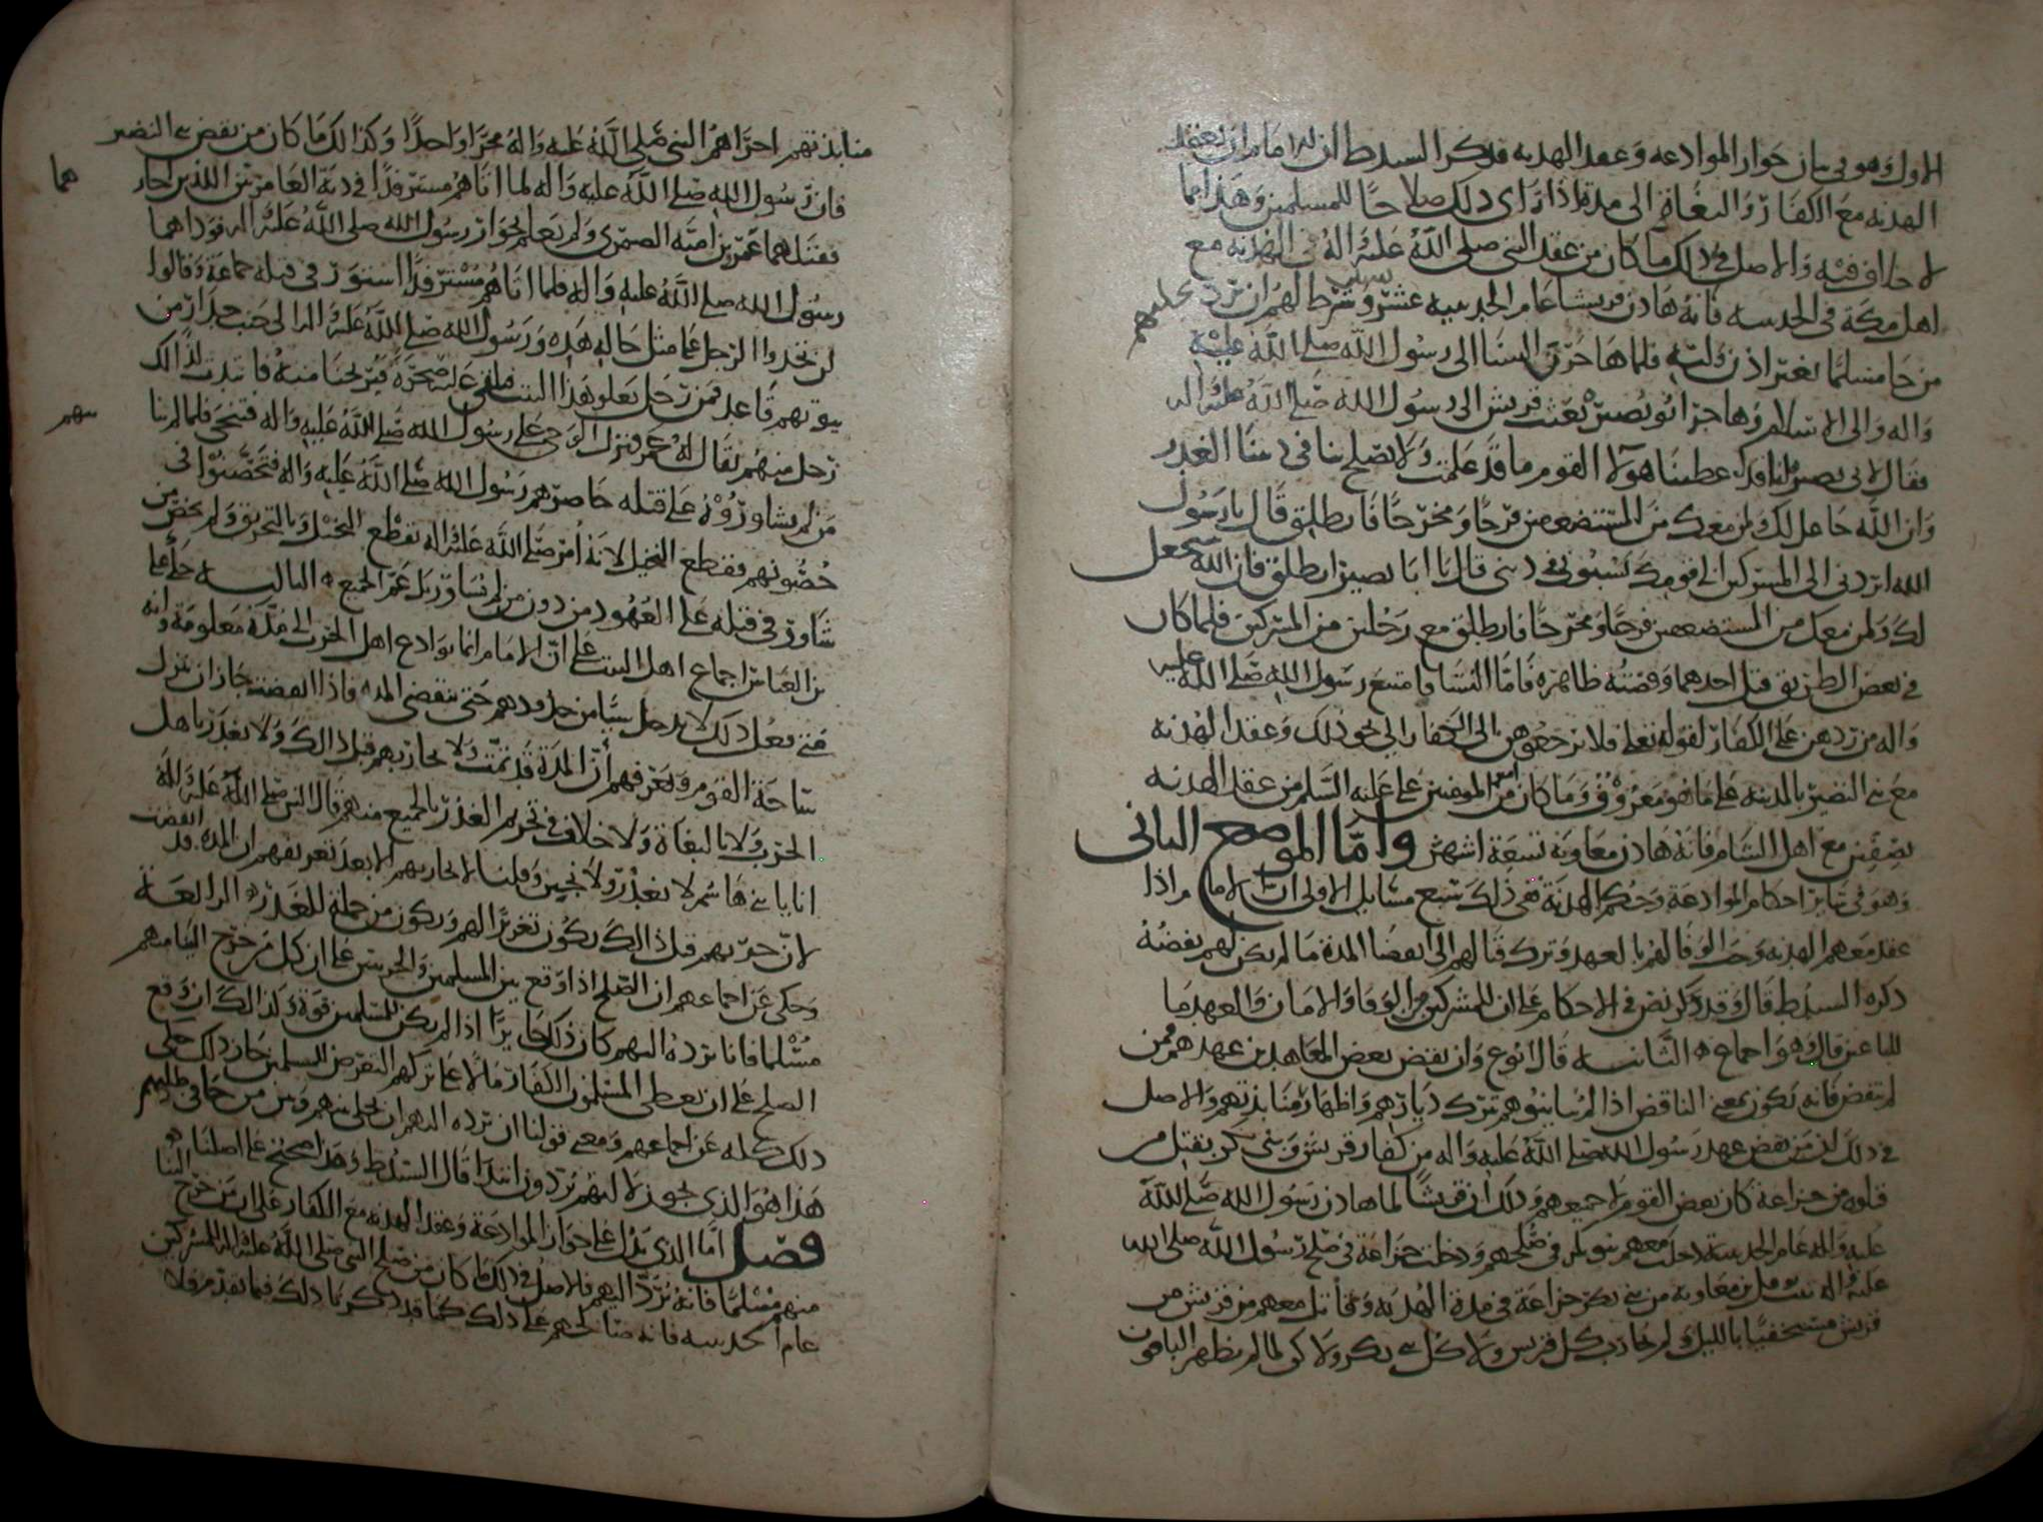 الاول وهو في بيان جواز الموادعة وعقد الهدنه فذكر السيد ط ان للامام ان يعقد
الهدنه مع الكفار والبغاة الى مدة اذا راى ذلك صلاحا للمسلمين وهذا مما
لا خلاف فيه والاصل في ذلك ما كان من عقد النبي صلى الله عليه واله في الهدنه مع
اهل مكة في الحديبيه فانه هادن قريشا عام الحديبيه عشر سنين وشرط لهم ان نرد عليهم
من جا مسلما بغير اذن وليه فلما هاجرن النسا الى رسول الله صلى الله عليه
واله والى الاسلام وهاجر ابو بصير بعثت قريش الى رسول الله صلى الله عليه واله
فقال لابي بصير انا قد اعطينا هولا القوم ما قد علمت ولا يصلح لنا في ديننا الغدر
وان الله جاعل لك ولمن معك من المستضعفين فرجا ومخرجا فانطلق قال يا رسول
الله اتردني الى المشركين الى قومك يفتنوني في ديني قال يا ابا بصير انطلق فان الله سيجعل
لك ولمن معك من المستضعفين فرجا ومخرجا فانطلق مع رجلين من المشركين فلما كان
في بعض الطريق قتل احدهما وقصته ظاهرة فاما النسا فامتنع رسول الله صلى الله عليه
واله من ردهن على الكفار لقوله تعلى فلا ترجعوهن الى الكفار الى نحو ذلك وعقد الهدنه
مع بني النضير بالمدينه على ما هو معروف وما كان من امير المومنين علي عليه السلم من عقد الهدنه
بصفين مع اهل الشام فانه هادن معاوية تسعة اشهر واما الموضع الثاني
وهو في سائر احكام الموادعة وحكم الهدنة ففي ذلك تسع مسائل الاولى ان الامام اذا
عقد معهم الهدنه وجب الوفا لهم بالعهد وترك قتالهم الى انقضا المدة ما لم يكن لهم نقضه
ذكره السيد ط قال وقد ذكر نص في الاحكام على ان للمشركين من الوفا والامان والعهد ما
للباغين قال وهو اجماع الثانيه قال ابوع وان نقض بعض المعاهدين عهدهم فمن
لم ينقض فانه يكون بمعنى الناقض اذا لم يباينوهم بترك ديارهم واظهار منابذتهم والاصل
في ذلك ان من نقض عهد رسول الله صلى الله عليه واله من كفار قريش وبني بكر بقتل من
قتلوه من خزاعة كان بعض القوم لا جميعهم وذلك ان قريشا لما هادن رسول الله صلى الله
عليه واله عام الحديبية دخلت معهم بنو بكر في صلحهم ودخلت خزاعة في صلح رسول الله صلى الله
عليه واله فبيت نوفل بن معاوية من بني بكر خزاعة في مدة الهدنه وقاتل معهم من قريش من
قريش مستخفيا بالليل ولم يحارب كل قريش ولا كل بني بكر ولاكن لما لم يظهر الباقون
منابذتهم اجراهم النبي صلى الله عليه واله مجرا واحدا وكذالك ما كان من نقض بني النضير
فان رسول الله صلى الله عليه واله لما اتاهم مسترفدا في دية العامريين اللذين اجار هما
فقتلهما عمرو بن امية الضمري ولم يعلم بجوار رسول الله صلى الله عليه واله فوداهما
رسول الله صلى الله عليه واله فلما اتاهم مسترفدا استوزر في قتله جماعة وقالوا
لن تجدوا الرجل على مثل حاله هذه ورسول الله صلى الله عليه واله الى جنب جدار من
بيوتهم قاعد فمن رجل يعلو هذا البيت فيلقي عليه صخرة فيريحنا منه فانتدب لذالك
رجل منهم يقال له عمرو فنزل الوحي على رسول الله صلى الله عليه واله فتنحى فلما لم ينابهم
من لم يشاوروه على قتله حاصرهم رسول الله صلى الله عليه واله فتحصنوا في
حصونهم فقطع النخيل لانه امر صلى الله عليه واله بقطع النخل وبالتحريق ولم يخص من
شاور في قتله على العهود من دون من لم يشاور بل عم الجميع الثالثه حكى علي
بن العباس اجماع اهل البيت على ان الامام انما يوادع اهل الحرب الى مدة معلومة وانه
متى فعل ذلك لا يدخل شيا من حدودهم حتى تنقضي المده فاذا انقضت جاز ان ينزل
ساحة القوم ويعرفهم ان المدة قد تمت ولا يحاربهم قبل ذالك ولا يغدر باهل
الحرب ولا بالبغاة ولا خلاف في تحريم الغدر بالجميع منهم قال النبي صلى الله عليه واله
انا يا بني هاشم لا نغدر ولا نجبن وقلنا لا يحاربهم الا بعد تعريفهم ان المدة قد انقضت
لان حربهم قبل ذالك يكون تغريرا لهم ويكون من جملة الغدر الرابعة
وحكى عن اجماعهم ان الصلح اذا وقع بين المسلمين والحربيين على ان كل من خرج الينا منهم
مسلما فانا نرده اليهم كان ذلك جايزا اذا لم يكن للمسلمين قوة وكذالك ان وقع
الصلح على ان يعطي المسلمون الكفار مالا على تركهم التعرض للمسلمين جاز ذلك حكى
ذلك كله عن اجماعهم ومعنى قولنا ان نرده اليهم ان نخلي بينهم وبين من جا في طلبهم
هذا هو الذي يجوز لا انهم يردون ابتدا قال السيد ط وهذا صحيح على اصلنا
فصل اما الذي يدل على جواز الموادعة وعقد الهدنه مع الكفار على ان من خرج الينا
منهم مسلما فانه نرد اليهم فالاصل في ذلك ما كان من صلح النبي صلى الله عليه واله المشركين
عام الحديبيه فانه صالحهم على ذلك كما قد ذكرنا ذلك فيما تقدم فلا